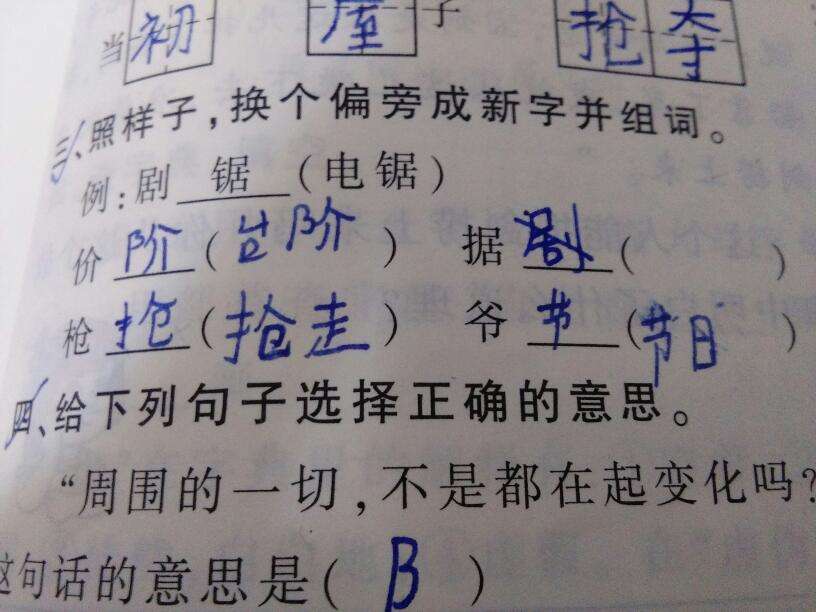 当初 屋子 抢夺
三、照样子，换个偏旁成新字并组词。
例：剧 锯 （电锯）
价 阶 （台阶） 据 剧 （ ）
枪 抢 （抢走） 爷 节 （节日）
四、给下列句子选择正确的意思。
“周围的一切，不是都在起变化吗？
这句话的意思是（ B ）